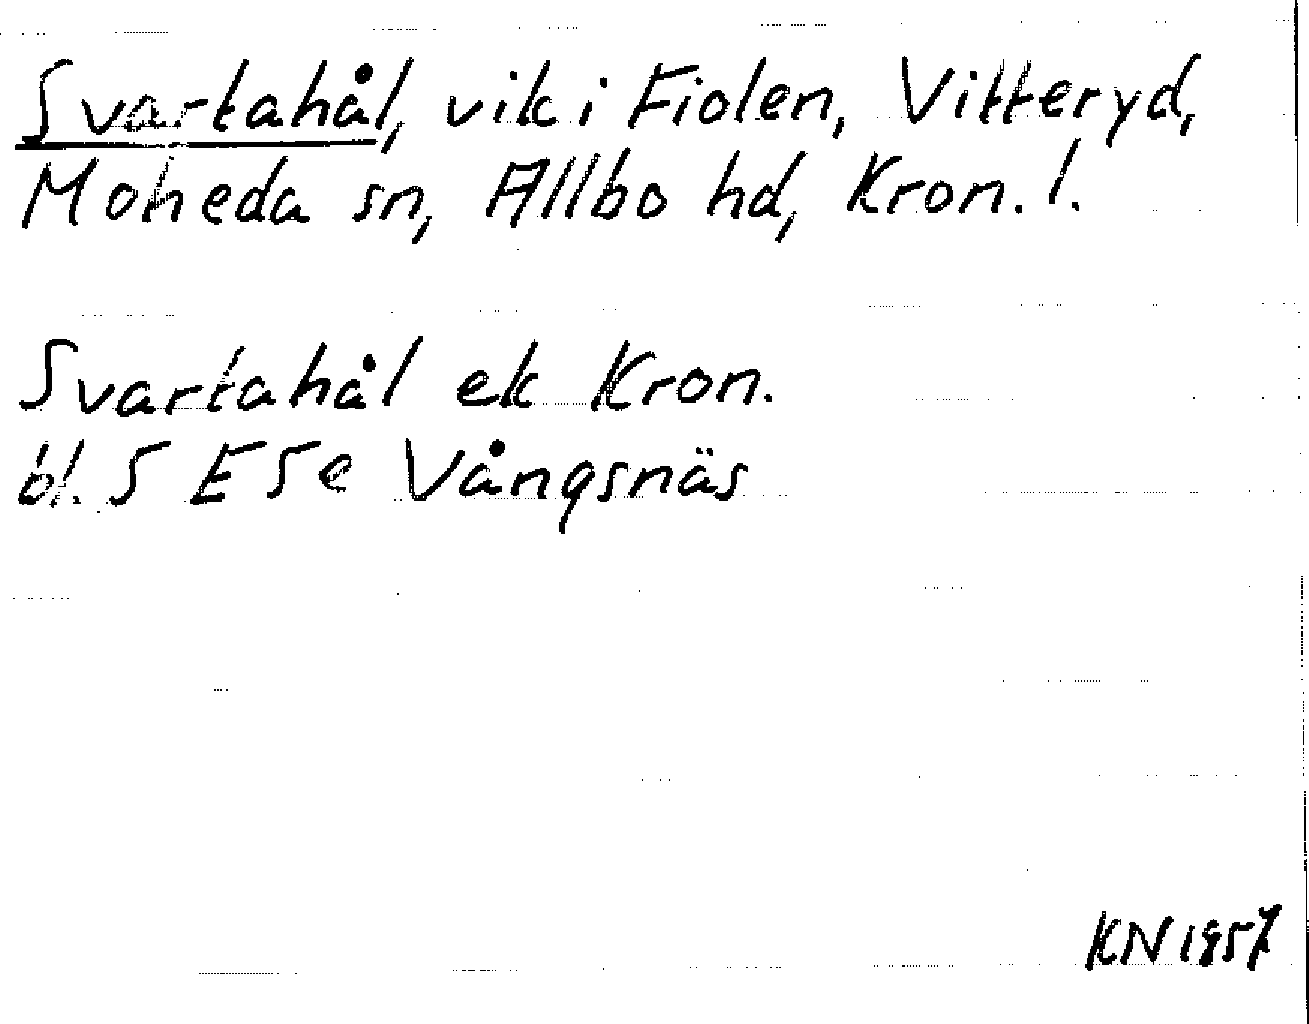 Svartahål, vik i Fiolen, Vitteryd,
Moheda sn, Allbo hd, Kron. l.
Svartahål ek Kron.
bl. 5 E 5e Vångsnäs
KN 1957